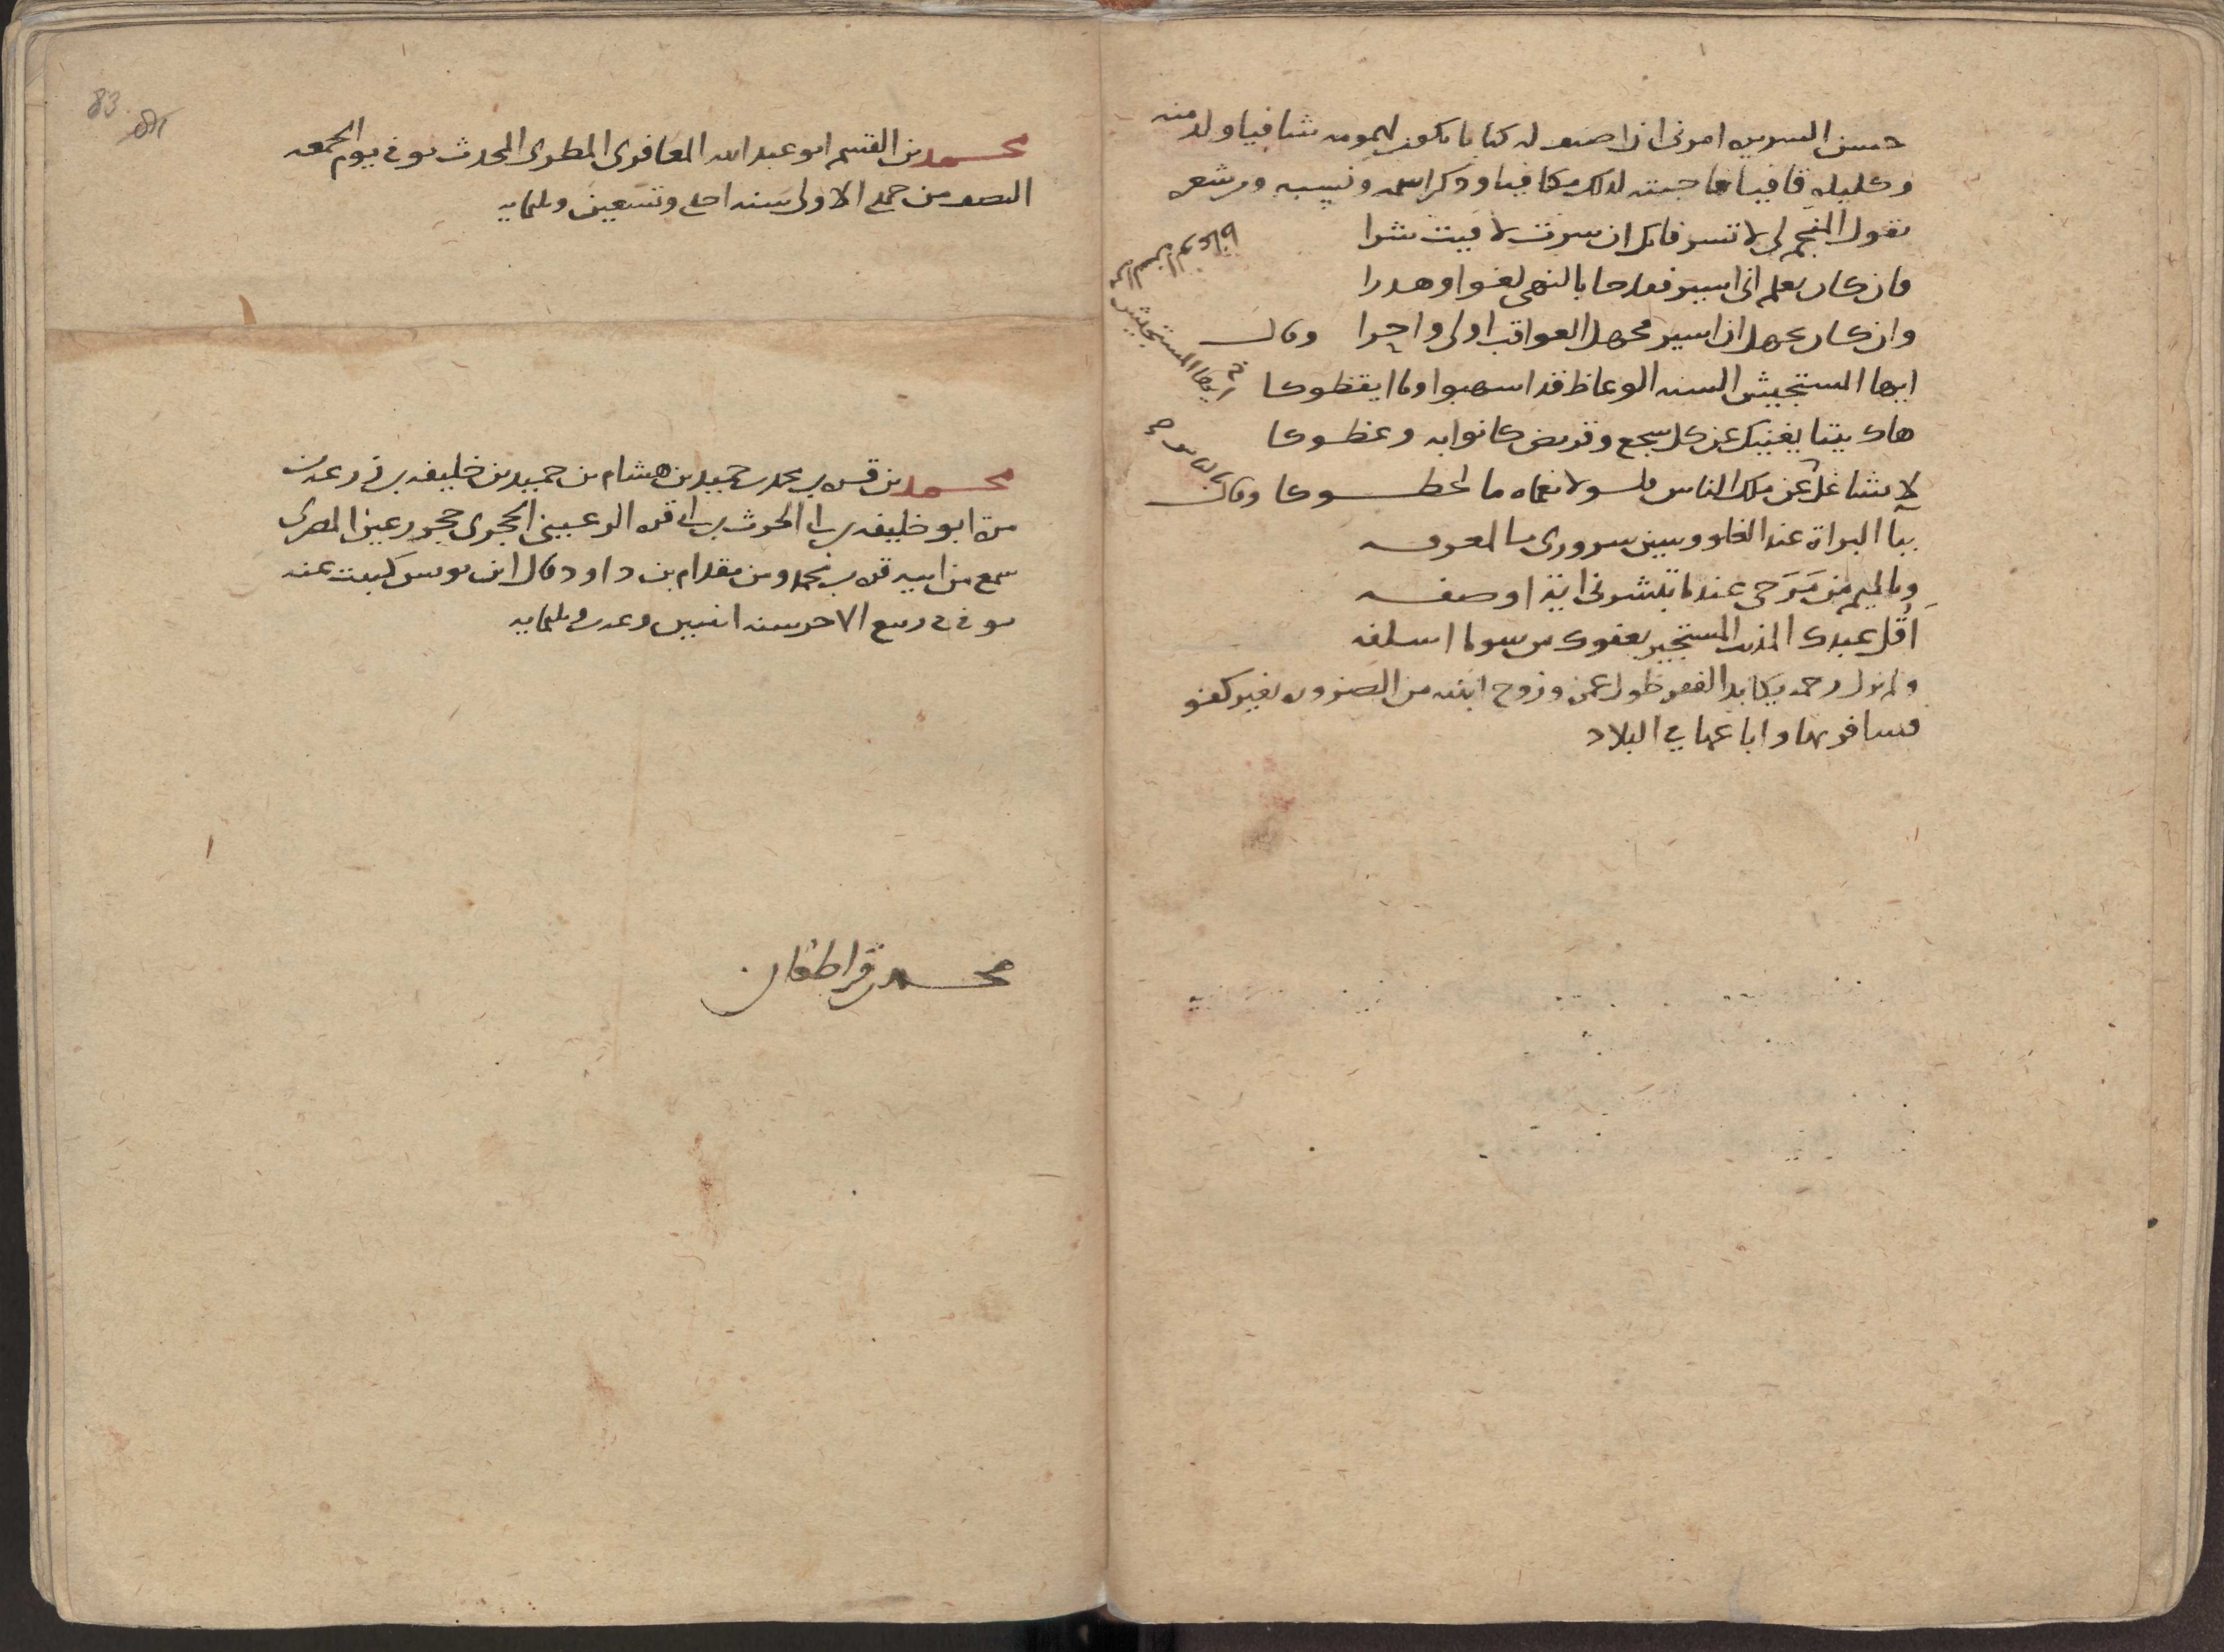 حسن السريره امرنى ان اصنف له كتابا يكون لهمومه شافيا ولد منه
وكليله قافيا فاجبته لذلك مكافيا وذكر اسمه ونسبه ومن شعره
يقول المنجم لى لا تسر فانك ان سرت لاقيت شرا
فان كان يعلم انى اسير فقد جا بالنهى لغوا وهدرا
وان كان يجهل ان اسير فجهل العواقب اولى واحرا وقال
ايها المستجيش السنه الوعاظ قد اسهبوا وما ايقظوكا
هاك بيتا يغنيك عن كل سجع وقريض كانوا به وعظوكا
لا تشاغل عن ملك الناس بالناس ولا تنساه ما لحظوكا وقال
ببا البراة عند الغلو وسين سرورى بالمعرفه
وبالميم من مرحى عندما تبشرنى اية او صفه
اقل عبدك المذنب المستجير بعفوك من سو ما اسلفه
ولم يزل رحمه يكابد الفقر طول عمره وزوج ابنته من الضروره بغير كفو
فسافر بها وباعها فى البلاد
ايها المستجيش
83
محمد بن القسم ابو عبد الله المعافرى المطرى المحدث توفى يوم الجمعه
النصف من جمدى الاولى سنه احدى وتسعين وثلثمايه
محمد بن قره بن محمد بن حميد بن هشام بن حميد بن خليفه بن زرعه بن
مرة ابو خليفه بن ابى الحرث بن ابى قره الرعينى الحجرى حجر رعين المصرى
سمع من ابيه قره بن محمد ومن مقدام بن داود قال ابن يونس كتبت عنه
توفى فى ربيع الاخر سنه اثنين وعشرين وثلثمايه
محمد بن قراطغان